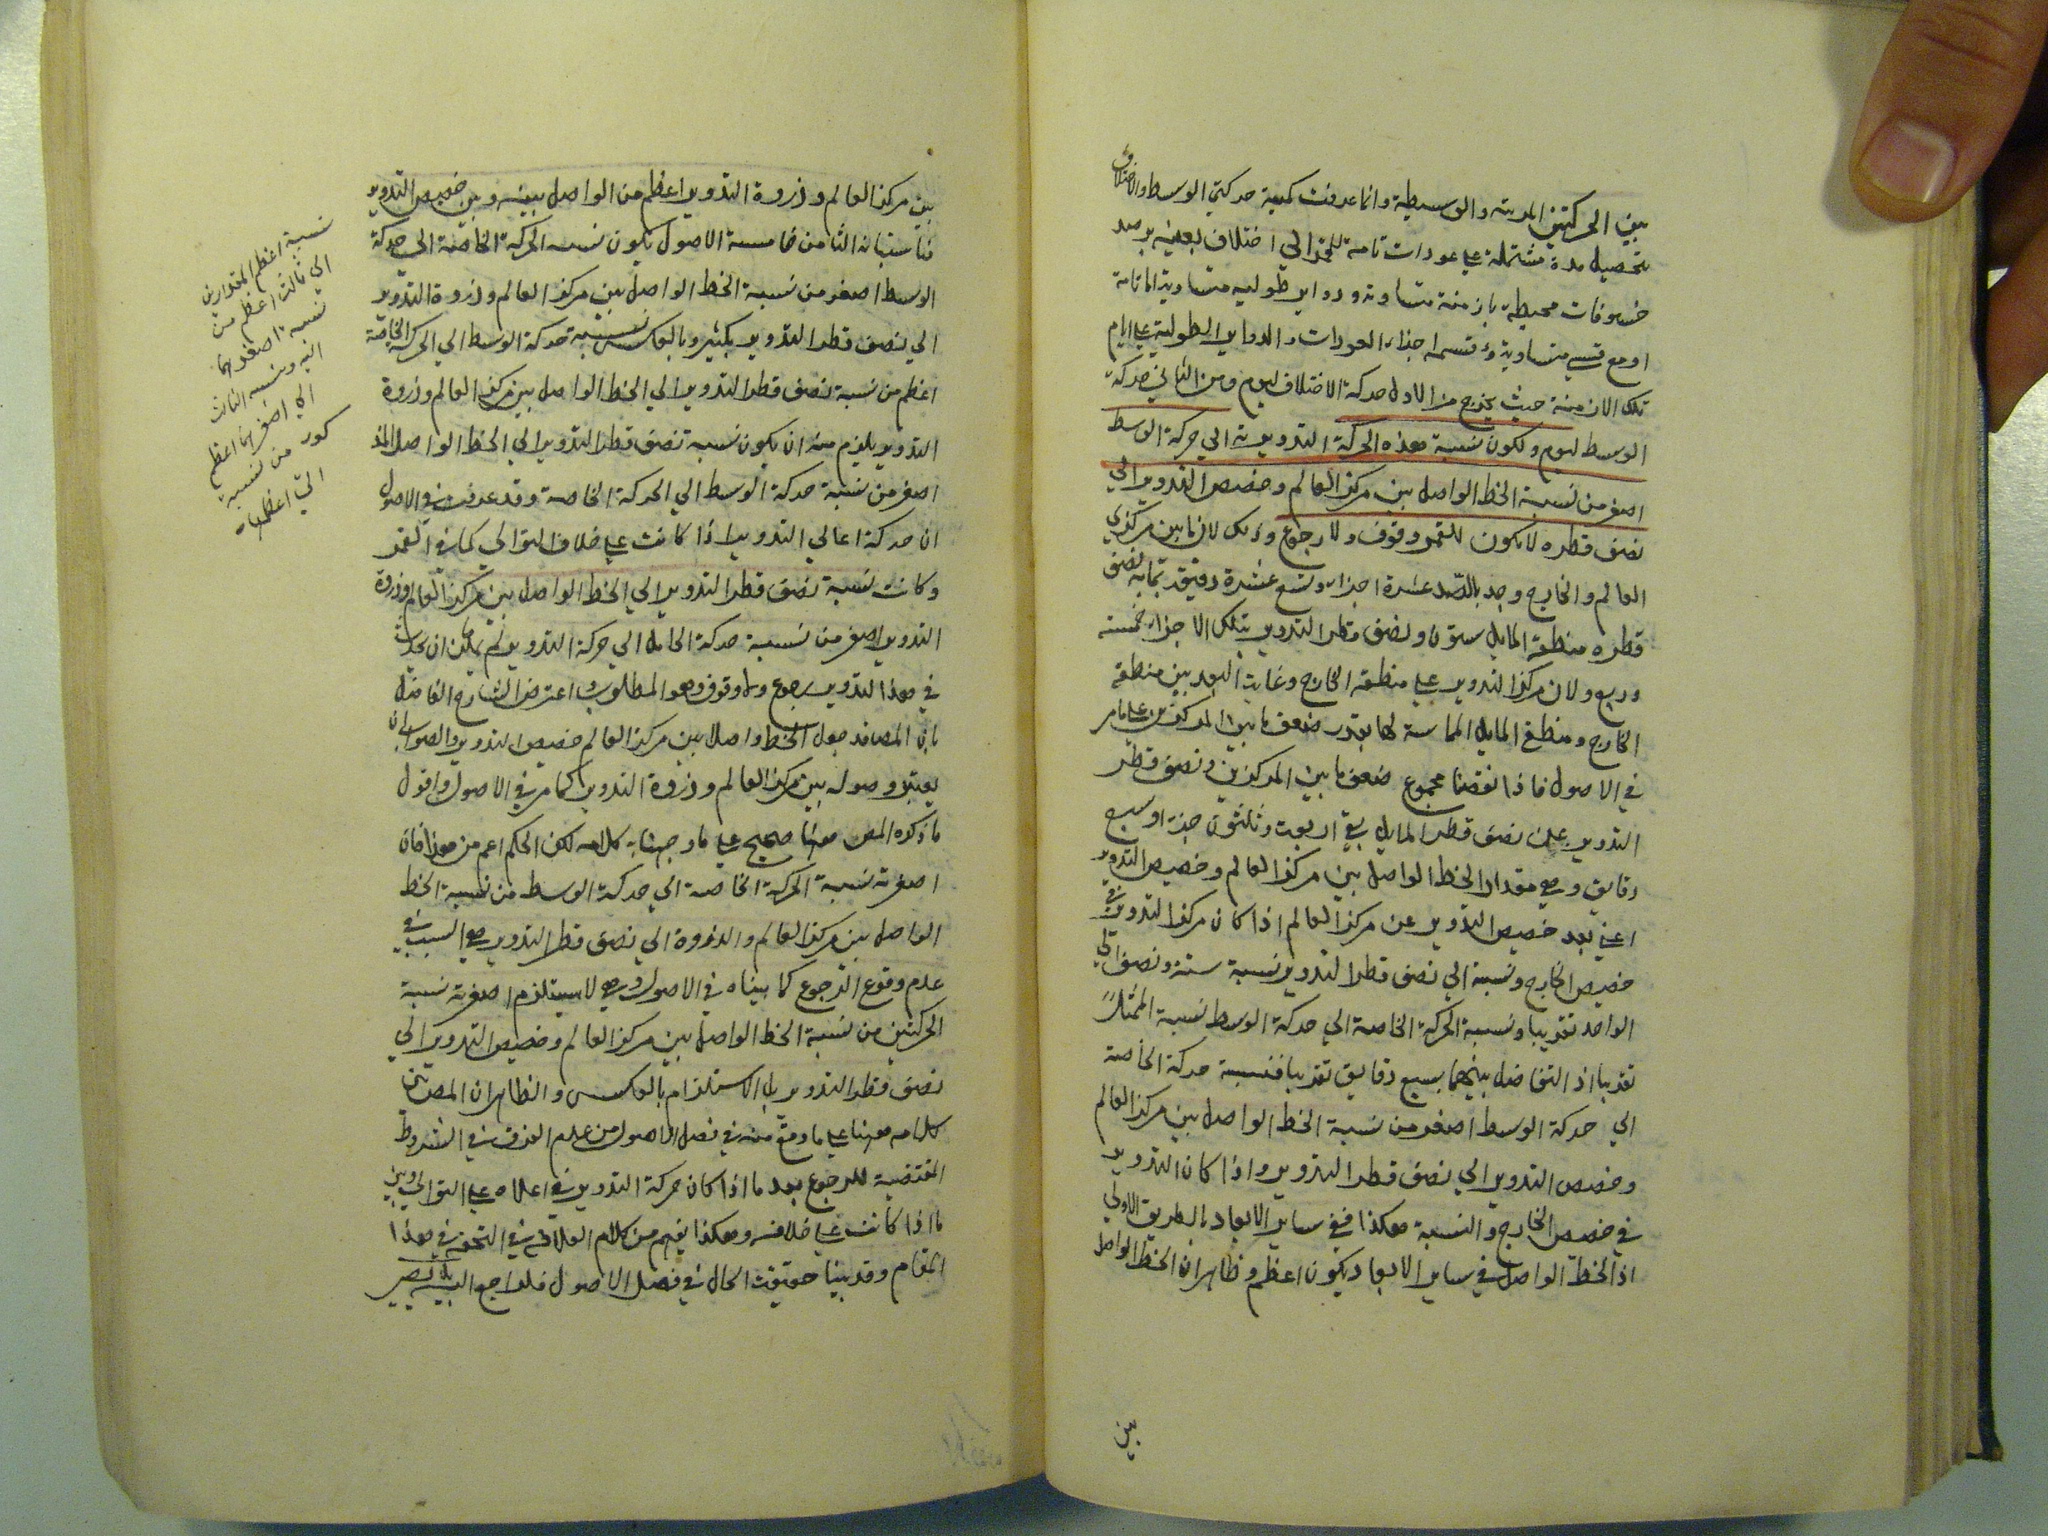 بين الحركتين المرئية والوسطية وانما عرفت كمية حركتي الوسط والاختلاف
بتحصيل مدة مشتملة على عودات تامة للقمر الى اختلاف بعينه برصد
خسوفات محيطة بازمنة متساوية ودواير طولية متساوية اما تامة
او مع قسي متساوية وقسمة اجزاء العودات والدواير الطولية على ايام
تلك الازمنة حيث يخرج من الاول حركة الاختلاف ليوم ومن الثاني حركة
الوسط ليوم ولكون نسبة هذه الحركة التدويرية الى حركة الوسط
اصغر من نسبة الخط الواصل بين مركز العالم وحضيض التدوير الى
نصف قطره لا يكون للقمر وقوف ولا رجوع وذلك لان ما بين مركزي
العالم والخارج وجد بالرصد عشرة اجزاء وتسع عشرة دقيقة بما به نصف
قطره منطقة المايل ستون ونصف قطر التدوير بتلك الاجزاء خمسة
وربع ولان مركز التدوير على منطقة الخارج وغاية البعد بين منطقة
الخارج ومنطقة المايل المماسة لها بقدر ضعف ما بين المركزين على ما مر
في الاصول فاذا نقصنا مجموع ضعف ما بين المركزين ونصف قطر
التدوير من نصف قطر المايل بقي اربعة وثلثون جزءا وسبع
دقايق وهي مقدار الخط الواصل بين مركز العالم وحضيض التدوير
اعني بعد حضيض التدوير عن مركز العالم اذا كان مركز التدوير في
حضيض الخارج ونسبة الى نصف قطر التدوير نسبة ستة ونصف الى
الواحد تقريبا ونسبة الحركة الخاصة الى حركة الوسط نسبة المثل
تقريبا اذ التفاضل بينهما بسبع دقايق تقريبا فنسبة حركة الخاصة
الى حركة الوسط اصغر من نسبة الخط الواصل بين مركز العالم
وحضيض التدوير الى نصف قطر التدوير واذا كان التدوير
في حضيض الخارج والنسبة هكذا ففي ساير الابعاد بالطريق الاولى
اذ الخط الواصل في ساير الابعاد يكون اعظم وظاهر ان الخط الواصل
بين
بين مركز العالم وذروة التدوير اعظم من الواصل بينه وبين حضيض التدوير
فباستبانة الثامن من خامسة الاصول يكون نسبة الحركة الخاصة الى حركة
الوسط اصغر من نسبة الخط الواصل بين مركز العالم وذروة التدوير
الى نصف قطر التدوير بكثير وبالعكس نسبة حركة الوسط الى الحركة الخاصة
اعظم من نسبة نصف قطر التدوير الى الخط الواصل بين مركز العالم وذروة
التدوير يلزم منه ان يكون نسبة نصف قطر التدوير الى الخط الواصل المذ
اصغر من نسبة حركة الوسط الى الحركة الخاصة وقد عرفت في الاصول
ان حركة اعالي التدوير اذا كانت على خلاف التوالي كما في القمر
وكانت نسبة نصف قطر التدوير الى الخط الواصل بين مركز العالم وذروة
التدوير اصغر من نسبة حركة الحامل الى حركة التدوير لم يمكن ان يحدث
في هذا التدوير رجوع ولا وقوف وهو المطلوب واعترض الشارح الفاضل
بان المص قد جعل الخط واصلا بين مركز العالم حضيض التدوير والصواب ان
يعتبر وصوله بين مركز العالم وذروة التدوير كما مر في الاصول واقول
ما ذكره المص ههنا صحيح على ما وجهنا به كلامه لكن الحكم اعم من هذا فان
اصغرية نسبة الحركة الخاصة الى حركة الوسط من نسبة الخط
الواصل بين مركز العالم والذروة الى نصف قطر التدوير هي السبب في
عدم وقوع الرجوع كما بيناه في الاصول وهي لا يستلزم اصغرية نسبة
الحركتين من نسبة الخط الواصل بين مركز العالم وحضيض التدوير الى
نصف قطر التدوير بل الاستلزام بالعكس والظاهر ان المص بنى
كلامه ههنا على ما وقع منه في فصل الاصول من عدم الفرق في الشروط
المقتضية للرجوع بعد ما اذا كان حركة التدوير في اعلاه على التوالي وبين
ما اذا كانت على خلافه وهكذا يفهم من كلام العلامة في التحفة في هذا
المقام وقد بينا حقيقة الحال في فصل الاصول فلراجع اليه
نسبة اعظم المقدارين
الى ثالث اعظم من
نسبة اصغرهما
اليه ونسبة الثالث
الى اصغرهما اعظم
من نسبته
الى اعظمهما
كور